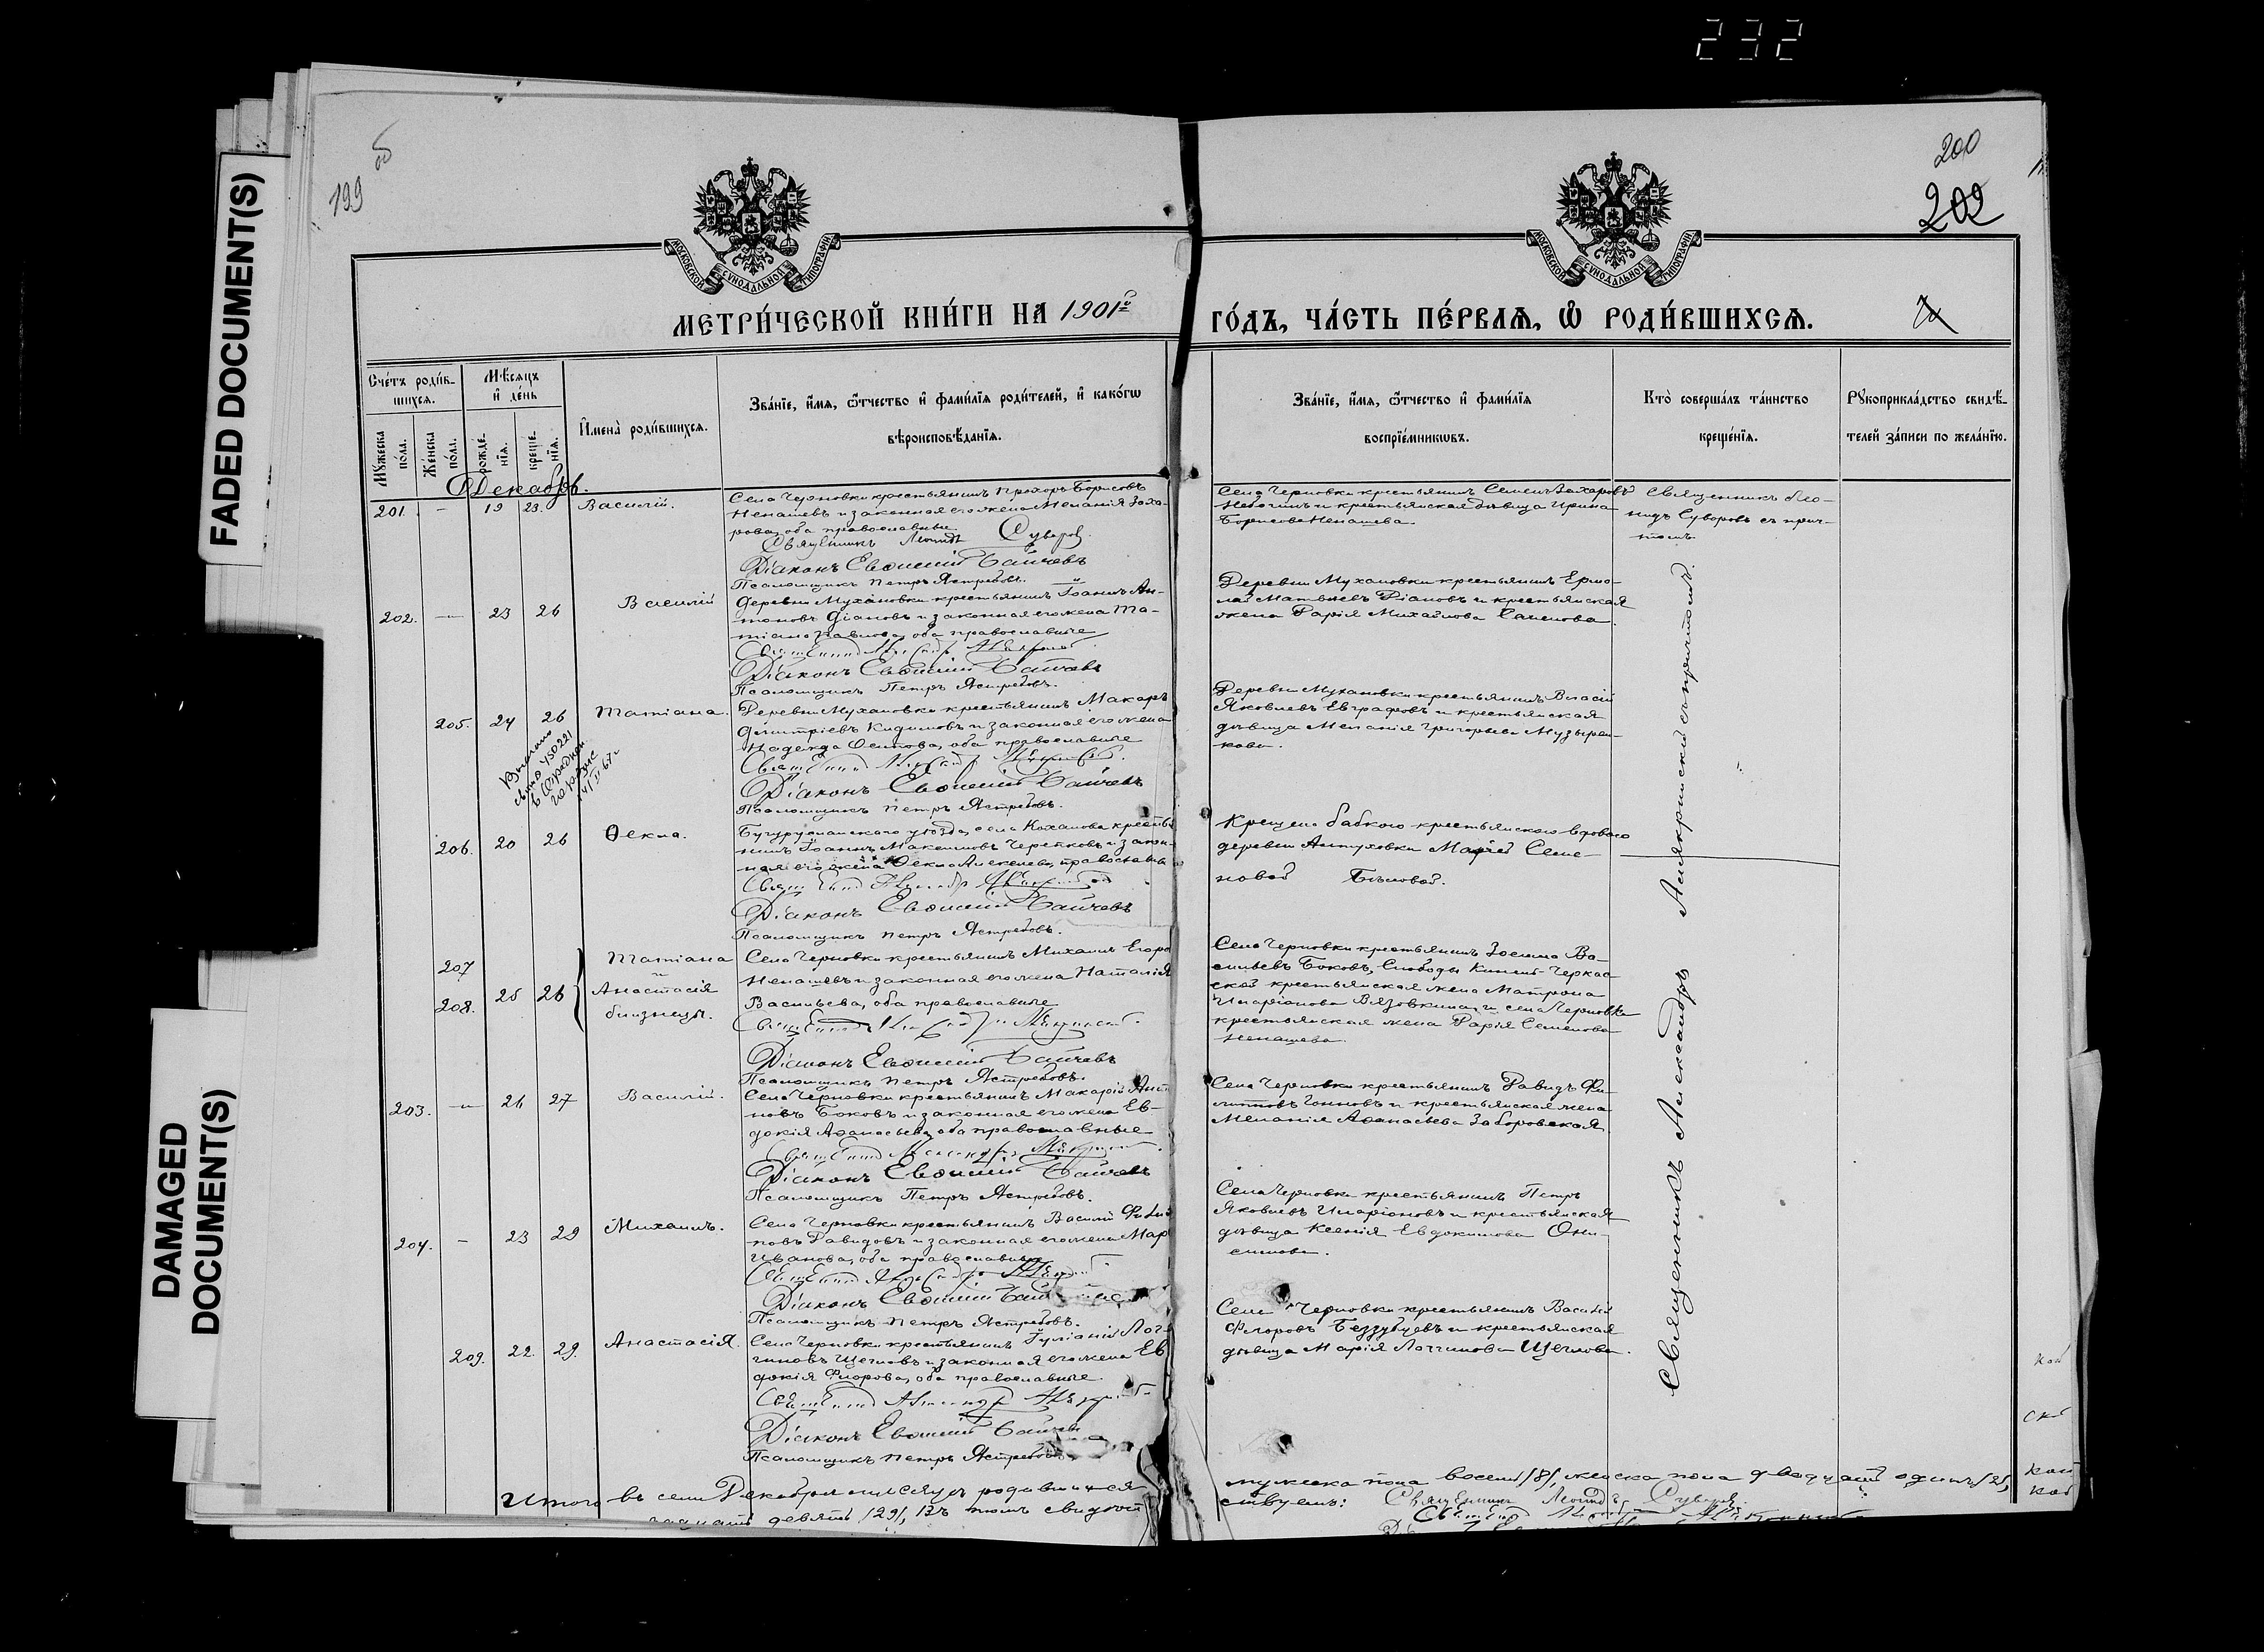 232
FADED DOCUMENT(S)
DAMAGED
DOCUMENT(S)
199 об
200
202
МОСКОВСКОЙ СѴНОДАЛЬНОЙ ТИПОГРАФІИ
МОСКОВСКОЙ СѴНОДАЛЬНОЙ ТИПОГРАФІИ
МЕТРИ́ЧЕСКОЙ КНИ́ГИ НА 1901й ГО́ДЪ, ЧА́СТЬ ПЕ́РВАѦ, Ѽ РОДИ́ВШИХСѦ.
Сче́тъ роди́в-
шихсѧ.
Мѣ́сѧцъ
и҆ де́нь
Мꙋ́жеска
по́ла.
Же́нска
по́ла.
рожде́-
нїѧ.
креще́-
нїѧ.
И҆мена̀ роди́вшихсѧ.
Зва́нїе, и҆́мѧ, ѻ҆́тчество и҆ фами́лїѧ роди́телей, и҆ како́гѡ
вѣроисповѣ́данїѧ.
Зва́нїе, и҆́мѧ, ѻ҆́тчество и҆ фами́лїѧ
воспрїе́мникѡвъ.
Кто̀ соверша́лъ та́инство
креще́нїѧ.
Рꙋкоприкла́дство свидѣ́-
телей за́писи по жела́нїю.
Декабрь.
201. - 19 23. Василій.
Села Черновки крестьянинъ Прохоръ Борисовъ
Ненашевъ и законная его жена Меланія Заха-
рова, оба православные
Священникъ Леонидъ Суворовъ.
Діаконъ Евѳимій
Псаломщикъ Петръ Ястребовъ.
Села Черновки крестьянинъ Семенъ Захаровъ
и крестьянская дѣвица Ирина
Борисова Ненашева.
Священникъ Лео-
нидъ Суворовъ съ прич-
томъ
202. — 23 26 Василій
Деревни Мухановки крестьянинъ Іоаннъ Ан-
тоновъ и законная его жена Та-
тіана Павлова, оба православные
Діаконъ Евѳимій
Псаломщикъ Петръ Ястребовъ.
Деревни Мухановки крестьянинъ Ермо-
лай Матвѣевъ и крестьянская
жена Дарія Михайлова Семенова.
205. 24 26 Татіана.
Деревни Мухановки крестьянинъ Макаръ
Димитріевъ Кидимовъ и законная его жена
Надежда Осипова, оба православные
Діаконъ Евѳимій
Псаломщикъ Петръ Ястребовъ.
Деревни Мухановки крестьянинъ Власій
Яковлевъ Евграфовъ и крестьянская
дѣвица Меланія Григорьева Музырен-
кова.
206. 20 26 Ѳекла.
Бугурусланскаго уѣзда, села Коханова крестья
нинъ Іоаннъ Максимовъ Черепковъ и закон-
ная его жена Ѳекла Алексѣева, православны
Діаконъ Евѳимій
Псаломщикъ Петръ Ястребовъ.
Крещена бабкою крестьянскою вдовою
деревни Антуховки Маріей Семе-
новой Бѣловой.
207
208. 25 26
Татіана
и
Анастасія
близнецы.
Села Черновки крестьянинъ Михаилъ Егоро
Ненашевъ и законная его жена Наталія
Васильева, оба православные
Діаконъ Евѳимій
Псаломщикъ Петръ Ястребовъ.
Села Черновки крестьянинъ Зосима Ва-
сильевъ Боковъ, Слободы Кинель-Черкас-
ской крестьянская жена Матрона
Иларіонова Вязовкина, и села Черновки
крестьянская жена Дарія Семенова
Ненашева.
203. — 26 27 Василій.
Села Черновки крестьянинъ Макарій Анти
повъ Боковъ и законная его жена Ев-
докія Аѳанасьева, оба православные
Діаконъ Евѳимій
Псаломщикъ Петръ Ястребовъ.
Села Черновки крестьянинъ Давидъ Фи-
липповъ и крестьянская жена
Меланія Аѳанасьева Заборовская.
204. - 23 29 Михаилъ.
Села Черновки крестьянинъ Василій Филип
повъ Давидовъ и законная его жена Мар
Иванова, оба православные
Діаконъ Евѳимій
Псаломщикъ Петръ Ястребовъ.
Села Черновки крестьянинъ Петръ
Яковлевъ Иларіоновъ и крестьянская
дѣвица Ксенія Евдокимова Они-
симова.
209. 22. 29. Анастасія.
Села Черновки крестьянинъ Іуліаній Лог-
гиновъ Щегловъ и законная его жена Ев
докія Флорова, оба православные.
Діаконъ Евѳимій
Псаломщикъ Петръ Ястребовъ.
Села Черновки крестьянинъ Василій
Флоровъ Беззубцевъ и крестьянская
дѣвица Марія Логгинова Щеглова.
Священникъ Александръ съ причтомъ.
Итого въ семъ Декабрѣ мѣсяцѣ родившихся мужеска пола восемь /8/, женска пола двадцать одинъ /21/
девять /29/, въ томъ свидѣтель
ствуемъ: Священникъ Леонидъ Суворовъ.